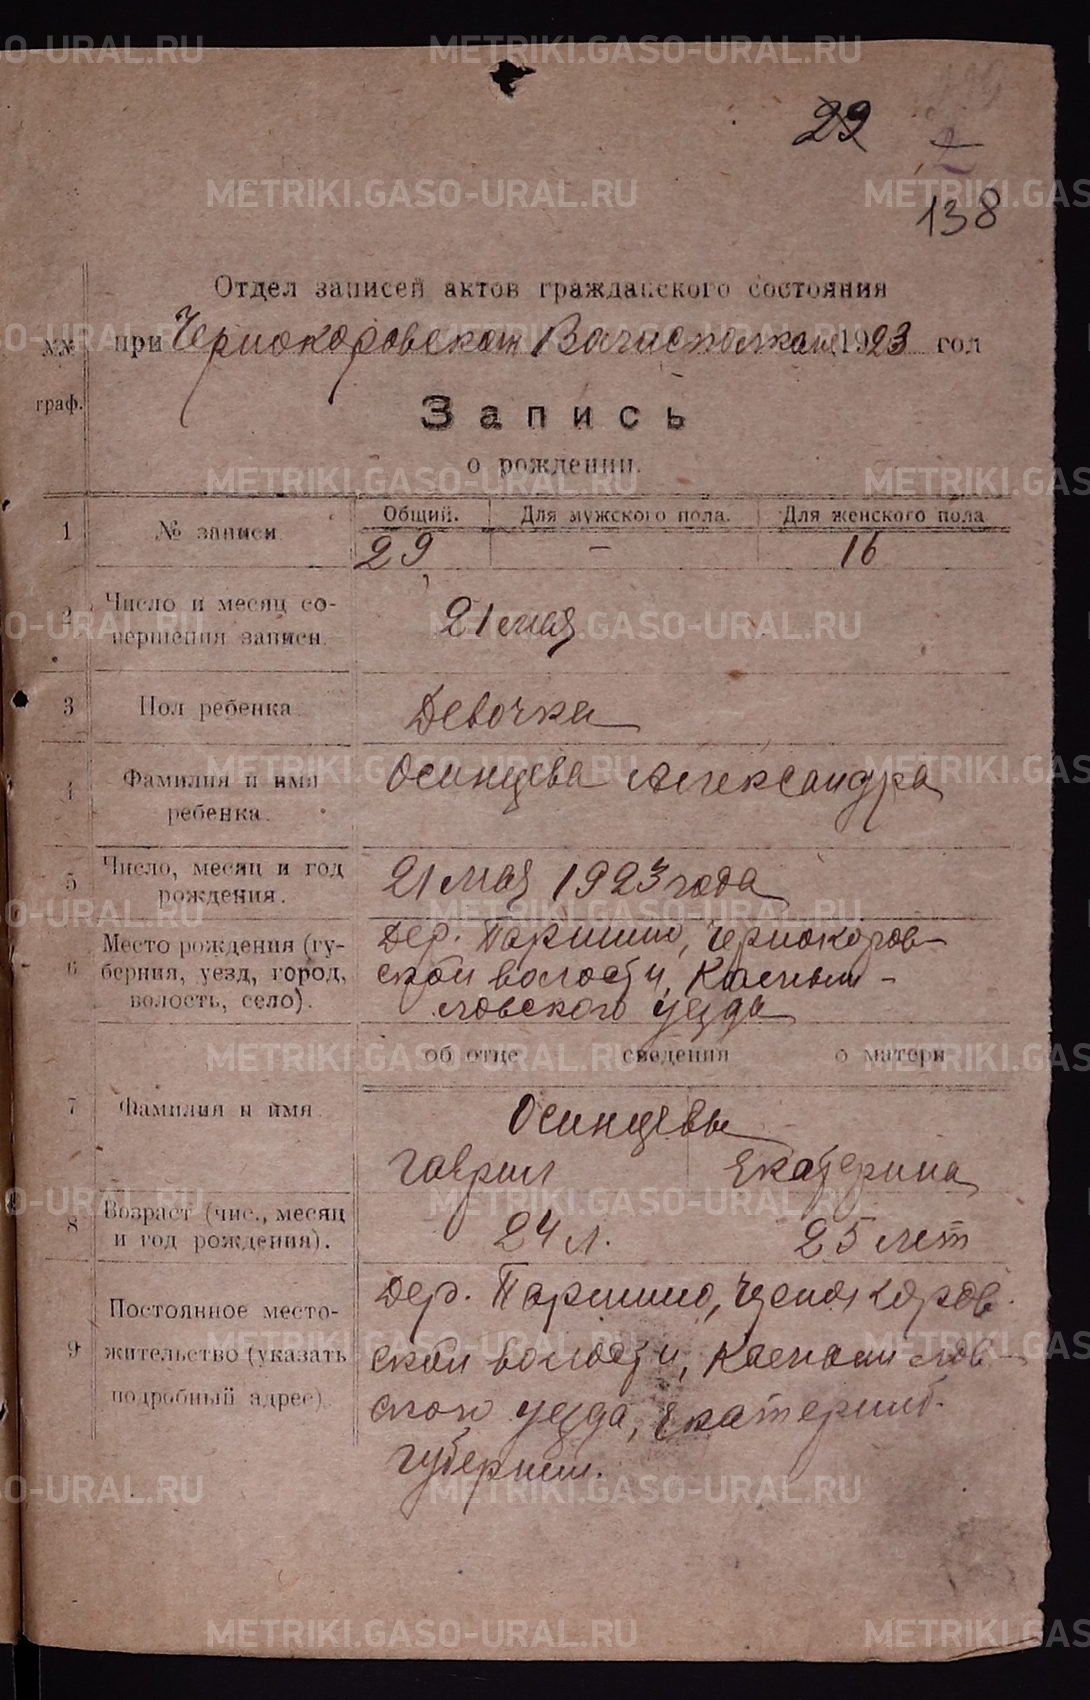 29
138
Отдел записей актов гражданского состояния
при Чернокоровском Волисполкоме 1923 год
№№
граф.
Запись
о рождении.
1 № записи Общий. Для мужского пола. Для женского пола
29 — 16
2 Число и месяц со-
вершения записи. 21 мая
3 Пол ребенка Девочка
4 Фамилия и имя
ребенка. Осинцева Александра
5 Число, месяц и год
рождения. 21 мая 1923 года
6 Место рождения (гу-
берния, уезд, город,
волость, село).
Дер. Паршино, Чернокоров-
ской волости, Камыш-
ловского уезда
об отце сведения о матери
7 Фамилия и имя
Осинцевы
Гаврил Екатерина
8 Возраст (чис., месяц
и год рождения).
24 л. 25 лет
9 Постоянное место-
жительство (указать
подробный адрес)
Дер. Паршино, Чернокоров-
ской волости, Камышлов-
ского уезда, Екатеринб.
губернии.
METRIKI.GASO-URAL.RU